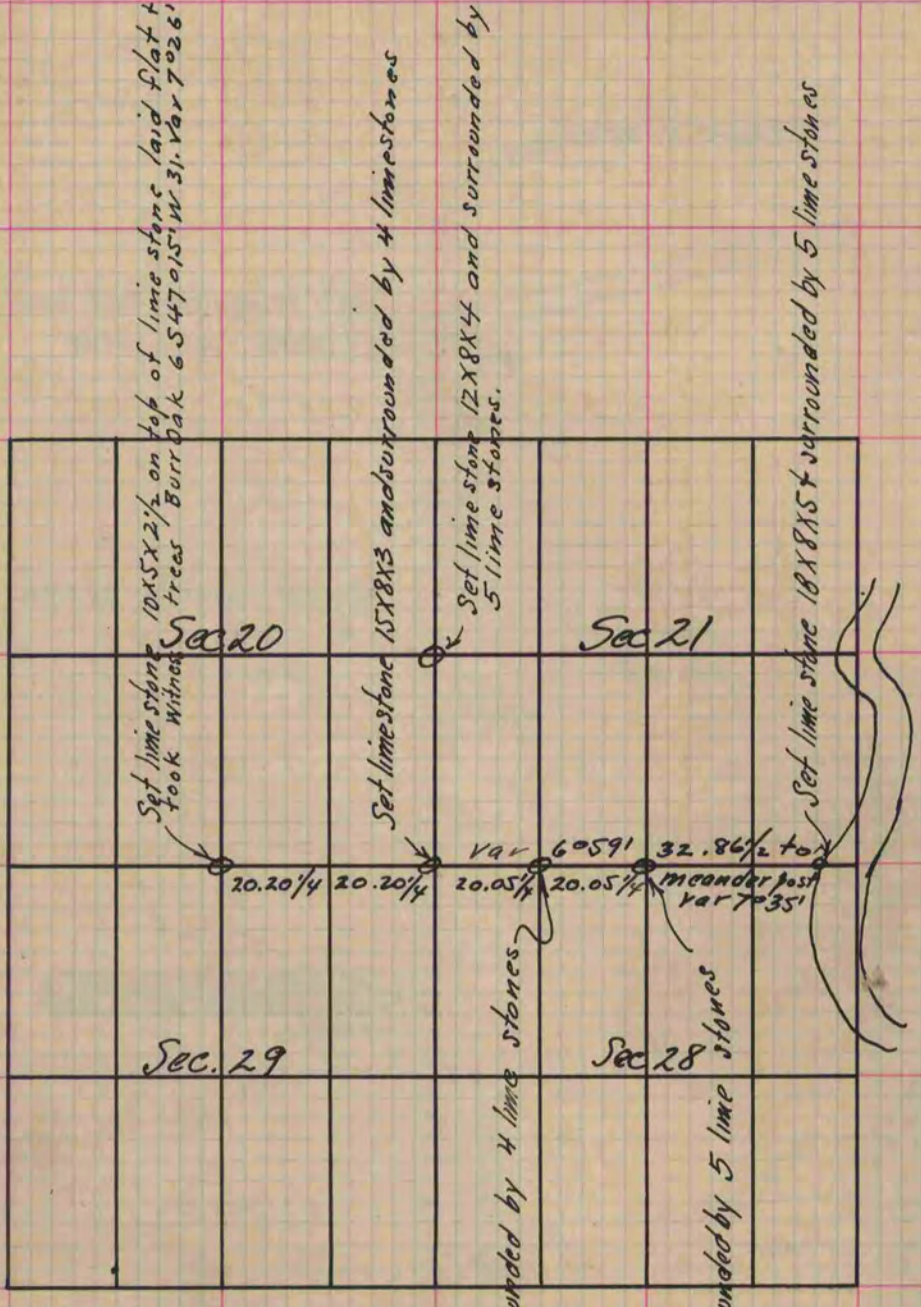 Set lime stone 10X5X2½ on top of lime stone laid flat
took Witness trees Burr Oak 6 S47°15'W 31. Var 7°26'
Set limestone 15X8X3 and surrounded by 4 limestones
Set lime stone 12X8X4 and surrounded by
5 lime stones.
Set lime stone 18X8X5 + surrounded by 5 lime stones
Sec 20
Sec 21
20.20¼
20.20¼
var 6°59'
20.05¼
20.05¼
32.86½ to
meander post
var 7°35'
Sec. 29
Sec 28
by 4 lime stones
by 5 lime stones